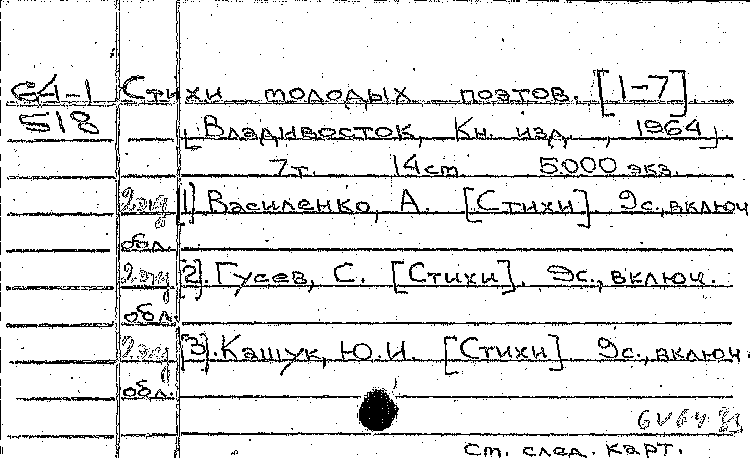 64-1 Стихи молодых поэтов. [1-7]
518 [Владивосток, Кн. изд., 1964]
7т. 14см 5000 экз.
2экз [1] Василенко, А. [Стихи] 9с., включ
обл.
2экз [2]. Гусев, С. [Стихи]. 9с., включ.
обл.
2экз [3]. Кашук, Ю.И. [Стихи] 9с., включ.
обл.
см. след. карт.